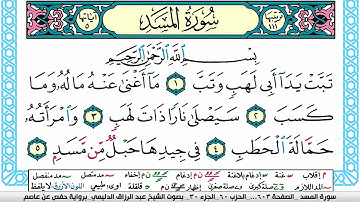 ترتيبها ١١١
سُورَةُ المَسَد
آياتها ٥
بِسْمِ اللَّهِ الرَّحْمَٰنِ الرَّحِيمِ
تَبَّتْ يَدَآ أَبِى لَهَبٍ وَتَبَّ ١ مَآ أَغْنَىٰ عَنْهُ مَالُهُۥ وَمَا
كَسَبَ ٢ سَيَصْلَىٰ نَارًا ذَاتَ لَهَبٍ ٣ وَٱمْرَأَتُهُۥ
حَمَّالَةَ ٱلْحَطَبِ ٤ فِى جِيدِهَا حَبْلٌ مِّن مَّسَدٍۭ ٥
سورة المسد الصفحة ٦٠٣ الجزء ٣٠ الحزب ٦٠ بصوت الشيخ عبد الرزاق الدليمي برواية حفص عن عاصم